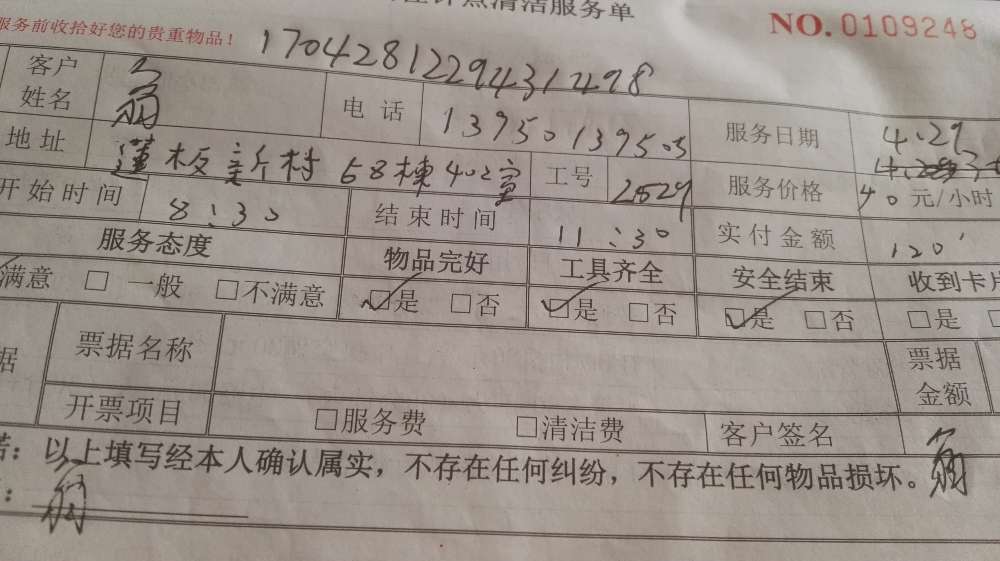 点清洁服务单
NO. 0109248
服务前收拾好您的贵重物品！
17042812294314 98
客户姓名 翁 电话 13950139505 服务日期 4.29
地址 莲板新村68栋402室 工号 2529 服务价格 40元/小时
开始时间 8:30 结束时间 11:30 实付金额 120
服务态度 物品完好 工具齐全 安全结束 收到卡片
满意 □ 一般 □不满意 □是 □否 □是 □否 □是 □否 □是
据 票据名称 票据金额
开票项目 □服务费 □清洁费 客户签名 翁
诺：以上填写经本人确认属实，不存在任何纠纷，不存在任何物品损坏。翁
：翁